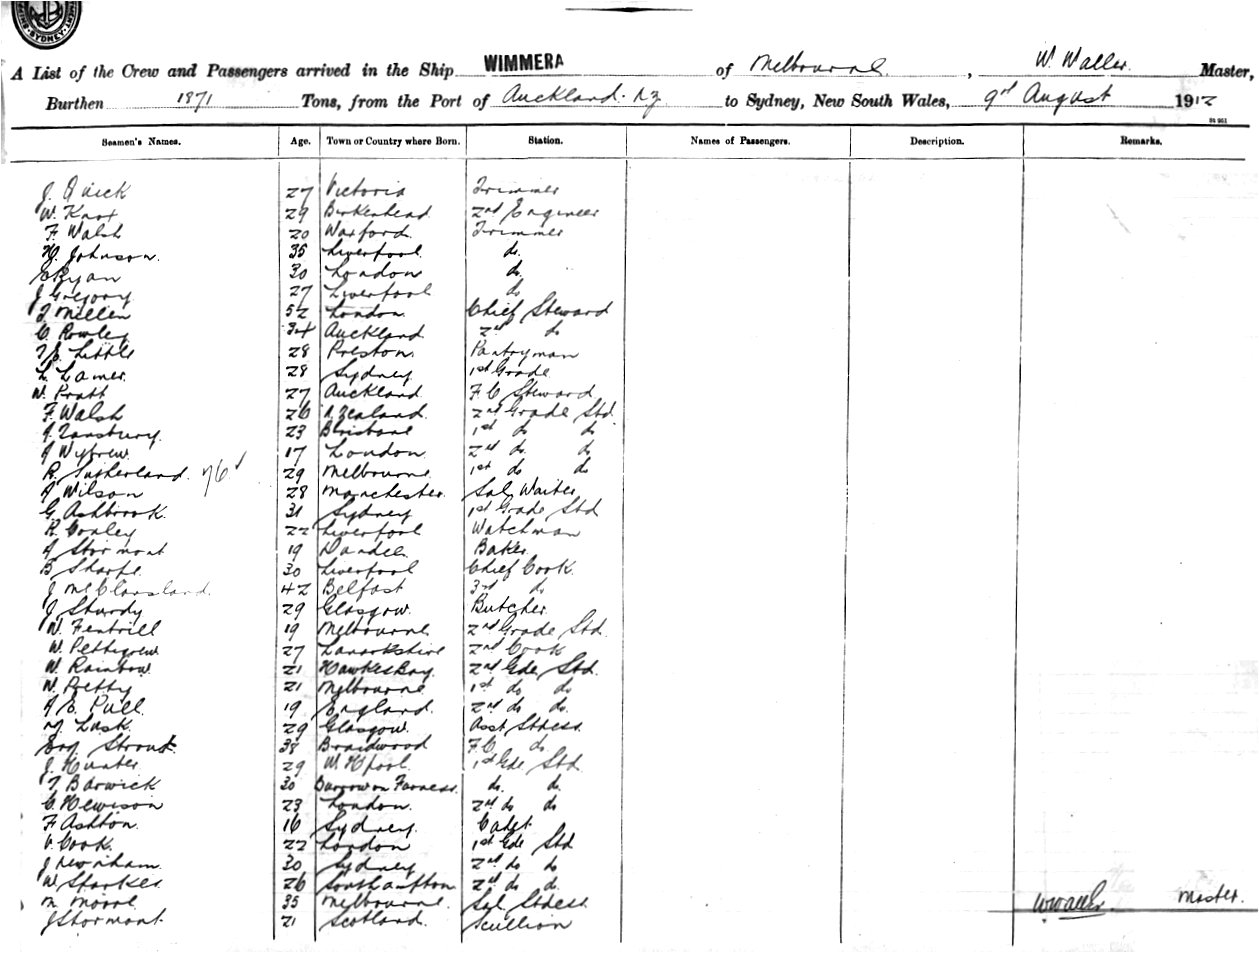 SYDNEY
A List of the Crew and Passengers arrived in the Ship WIMMERA of Melbourne, W. Waller Master,
Burthen 1871 Tons, from the Port of Auckland. NZ to Sydney, New South Wales, 9th August 1912
Seamen's Names. Age. Town or Country where Born. Station. Names of Passengers. Description. Remarks.
J. Quick 27 Victoria Trimmer
W. Knox 29 Birkenhead 2nd Engineer
F. Walsh 20 Waxford Trimmer
H. Johnson. 35 Liverpool do.
Ryan 30 London do.
J Gregory 27 Liverpool do
T Millen 52 London Chief Steward
C. Rowley 34 Auckland 2nd do
Little 28 Preston Pantryman
L. Lamer 28 Sydney 1st Grade
W. Pratt 27 Auckland F.C Steward
F. Walsh 26 N Zealand 2nd Grade Std.
A. Tansbury. 23 Brisbane 1st do do
A Wybrew 17 London 2nd do do
R. Sutherland. 29 Melbourne 1st do do
A Wilson 28 Manchester. Sal Waiter
G. Ashbrook 31 Sydney 1st Grade Std
R. Conley 22 Liverpool Watchman
A Stormont 19 Dundee Baker
B Sharpe. 30 Liverpool Chief Cook
J McClausland 42 Belfast 3rd do
J Sturdy 29 Glasgow Butcher
W. Fentrill 19 Melbourne 2nd Grade Std.
W. Pettigrew 27 Lanarkshire 2nd Cook
W. Rainbow 21 Hawkes Bay 2nd Gde Std.
W. Pretty 21 Melbourne 1st do do
A E Pull 19 England. 2nd do do.
M Lusk. 29 Glasgow. Asst Stdess
Stroud 38 Braidwood F.C do.
J. Hunter 29 W. H'pool. 1st Gde Std.
T Barwick 30 Barrow on Furness. do. do.
C. Hewison 23 London. 2nd do do
F Ashton. 16 Sydney. Cadet.
V. Cook. 22 London 1st Gde Std
J Newnham. 30 Sydney 2nd do do
W Starkes 26 Southampton 2nd do do.
M Moore. 35 Melbourne. Sal Stdess W Waller. Master.
J Stormont. 21 Scotland. Scullion